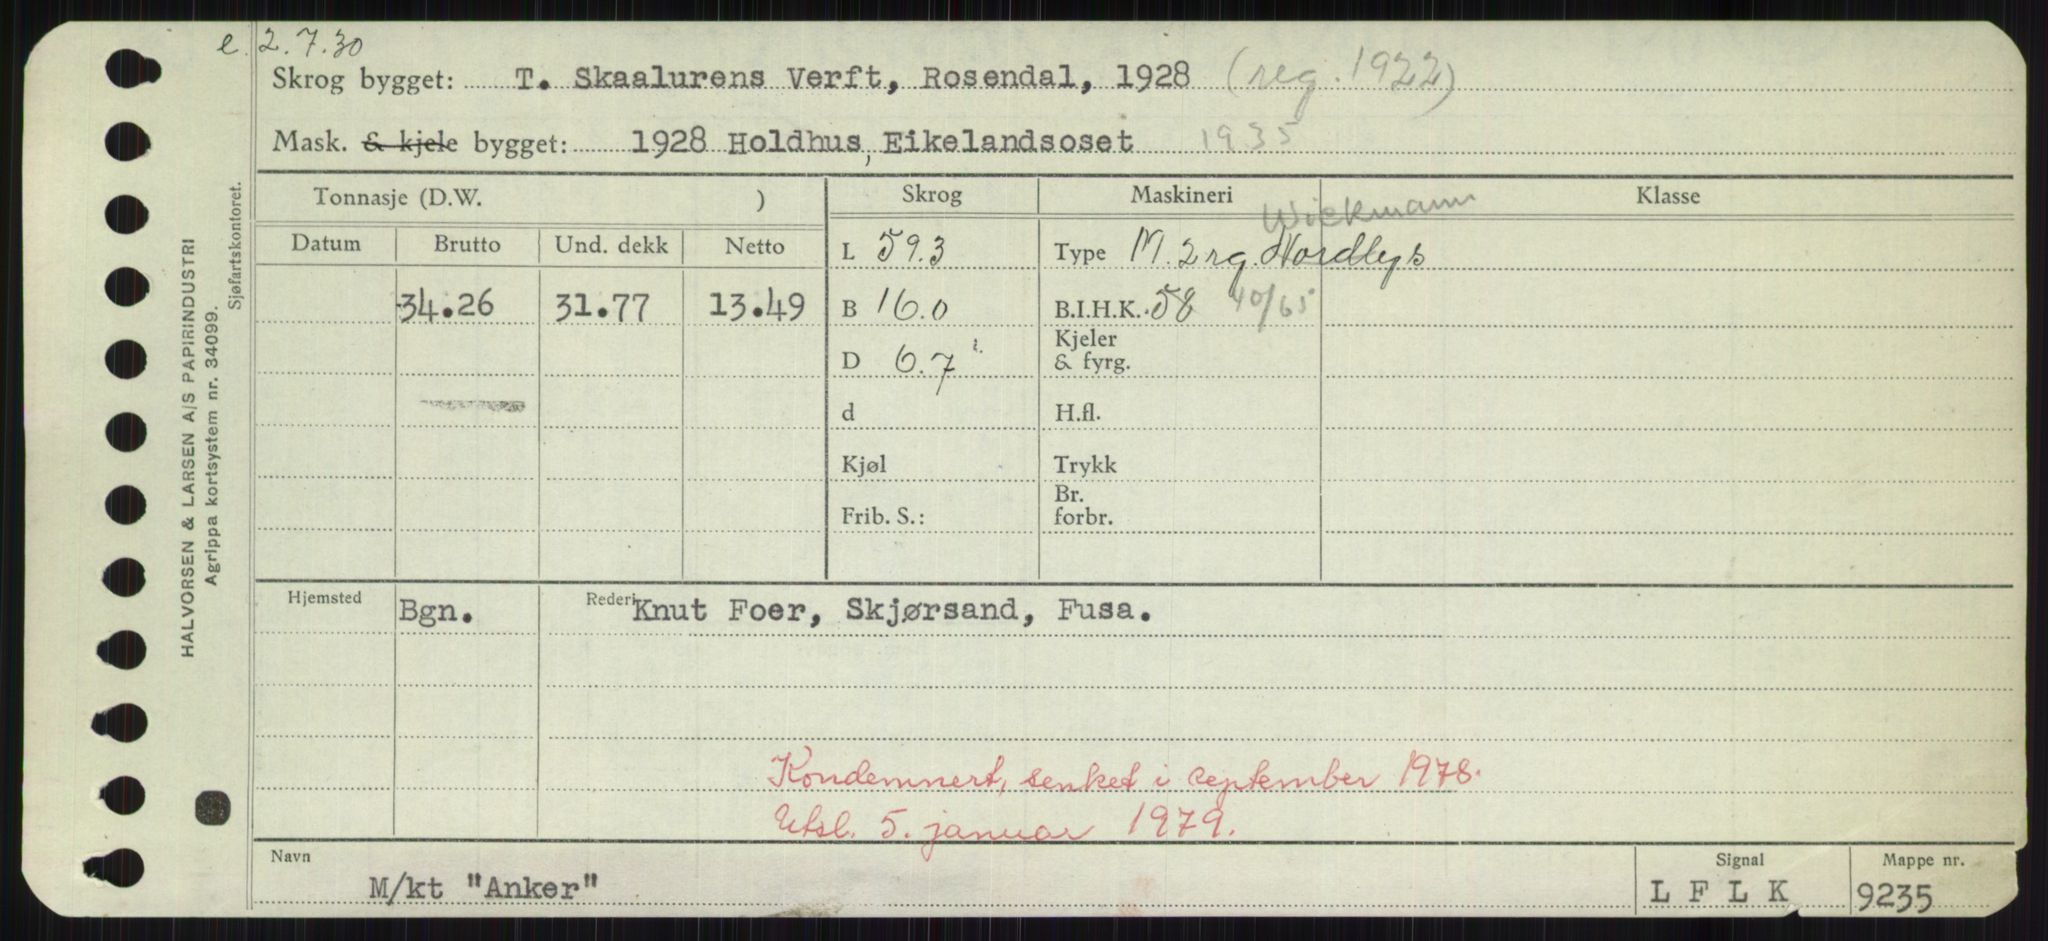 e. 2.7.30
Skrog bygget: T. Skaalurens Verft, Rosendal, 1928 (reg. 1922)
Mask. & kjele bygget: 1928 Holdhus, Eikelandsoset 1935
HALVORSEN & LARSEN A/S PAPIRINDUSTRI
Agrippa kortsystem nr. 34099.
Sjøfartskontoret.
Tonnasje (D.W. ) Skrog Maskineri Klasse
Wickmann
Datum Brutto Und. dekk Netto L 59.3 Type M. 2 rg. Nordlys
34.26 31.77 13.49 B 16.0 B.I.H.K. 58 40/65
Kjeler
D 6.7 & fyrg.
d H.fl.
Kjøl Trykk
Br.
Frib. S.: forbr.
Hjemsted Bgn. Rederi Knut Foer, Skjørsand, Fusa.
Kondemnert, senket i september 1978.
Utsl. 5. januar 1979.
Navn Signal Mappe nr.
M/kt "Anker" L F L K 9235